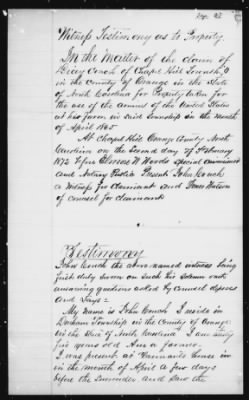 Witness Testimony as to Property
In the Matter of the claim of
Couch of Chapel Hill Township
in the County of Orange in the State
of North Carolina for Property taken for
the use of the armies of the United States
at his farm in said Township in the month
of April 1865
At Chapel Hill Orange County North
Carolina on the Second day of February
1872 before Thomas M Woods special commissioner
and Notary Public Present John Couch
a Witness for claimant and Watson
of Counsel for claimant
Testimony
John Couch the above named witness being
first duly sworn on such his solemn oath
answering questions asked by Counsel deposes
and Says =
My name is John Couch I reside in
Durham Township in the County of Orange
in the State of North Carolina I am
five years old Am a farmer.
I was present at in
in the month of April a few days
before the Surrender and saw the